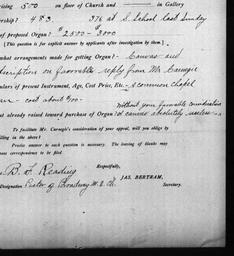 500 on floor of Church and in Gallery
483. 376 at S. School last Sunday
of proposed Organ? $2500 - $3000
[This question is for explicit answer by applicants after investigation by them]
what arrangements made for getting Organ? - Canvas and
subscription on favorable reply from Mr Carnegie
of present Instrument, Age, Cost Price, Etc. - A common chapel
- cost about $100 -
Without your favorable consideration
already raised toward purchase of Organ? a canvas absolutely useless
To facilitate Mr. Carnegie's consideration of your appeal, will you oblige by
filling in the above?
Precise answer to each question is necessary. The leaving of blanks may
correspondence to be filed.
Respectfully,
B. F. Reading
JAS. BERTRAM,
Designation Pastor of Broadway M. E. Ch. Secretary.